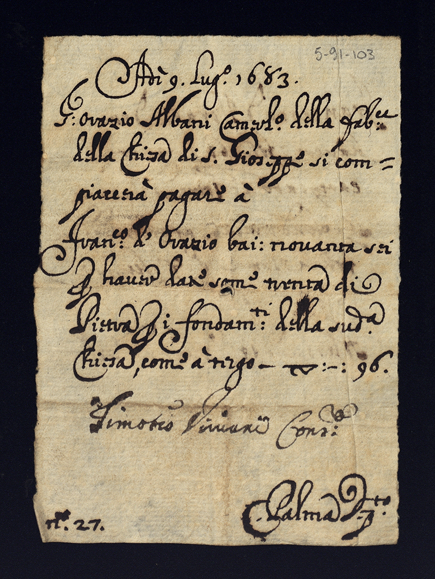 5-91-103
Adi 9. Lug.º 1683.
S: Orazio Albani Camerl.º della Fab:ca
della Chiesa di S. Gioseppe si com=
piacerà pagare à
Fran.co d'Orazio bai: novanta sei
P haver date some trenta di
Pietra P i fondam:ti della sud.a
Chiesa, come à tergo — — : — : 96.
Timoteo
n.º 27.
C. Palma